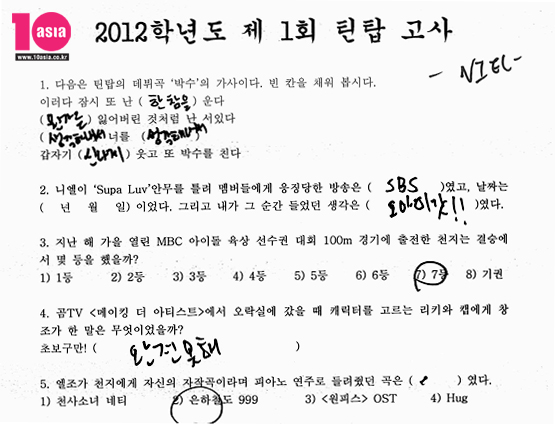 10asia
www.10asia.co.kr
2012학년도 제 1회 틴탑 고사
- NIEL -
1. 다음은 틴탑의 데뷔곡 '박수'의 가사이다. 빈 칸을 채워 봅시다.
이러다 잠시 또 난 ( 한참을 ) 운다
( 완전을 ) 잃어버린 것처럼 난 서있다
( 생각해봐서 너를 ( 생각해봐서 )
갑자기 ( 신나게 ) 웃고 또 박수를 친다
2. 니엘이 'Supa Luv'안무를 틀려 멤버들에게 응징당한 방송은 ( SBS )였고, 날짜는
( 년 월 일) 이었다. 그리고 내가 그 순간 들었던 생각은 ( )였다.
3. 지난 해 가을 열린 MBC 아이돌 육상 선수권 대회 100m 경기에 출전한 천지는 결승에
서 몇 등을 했을까?
1) 1등 2) 2등 3) 3등 4) 4등 5) 5등 6) 6등 7) 7등 8) 기권
4. 곰TV <메이킹 더 아티스트>에서 오락실에 갔을 때 캐릭터를 고르는 리키와 캡에게 창
조가 한 말은 무엇이었을까?
초보구만! ( 완전못해 )
5. 엘조가 천지에게 자신의 자작곡이라며 피아노 연주로 들려줬던 곡은 ( 2 ) 였다.
1) 천사소녀 네티 2) 은하철도 999 3) <원피스> OST 4) Hug